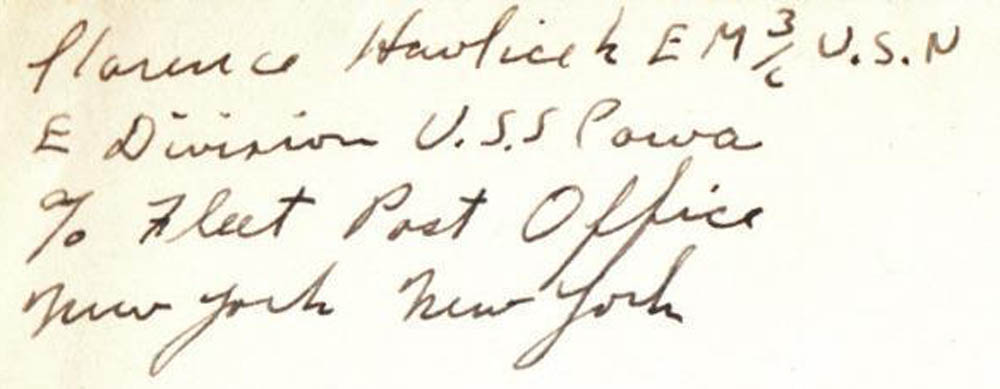 Clarence Havlicek EM 3/c U.S.N
E Division U.S.S Iowa
c/o Fleet Post Office
New York New York